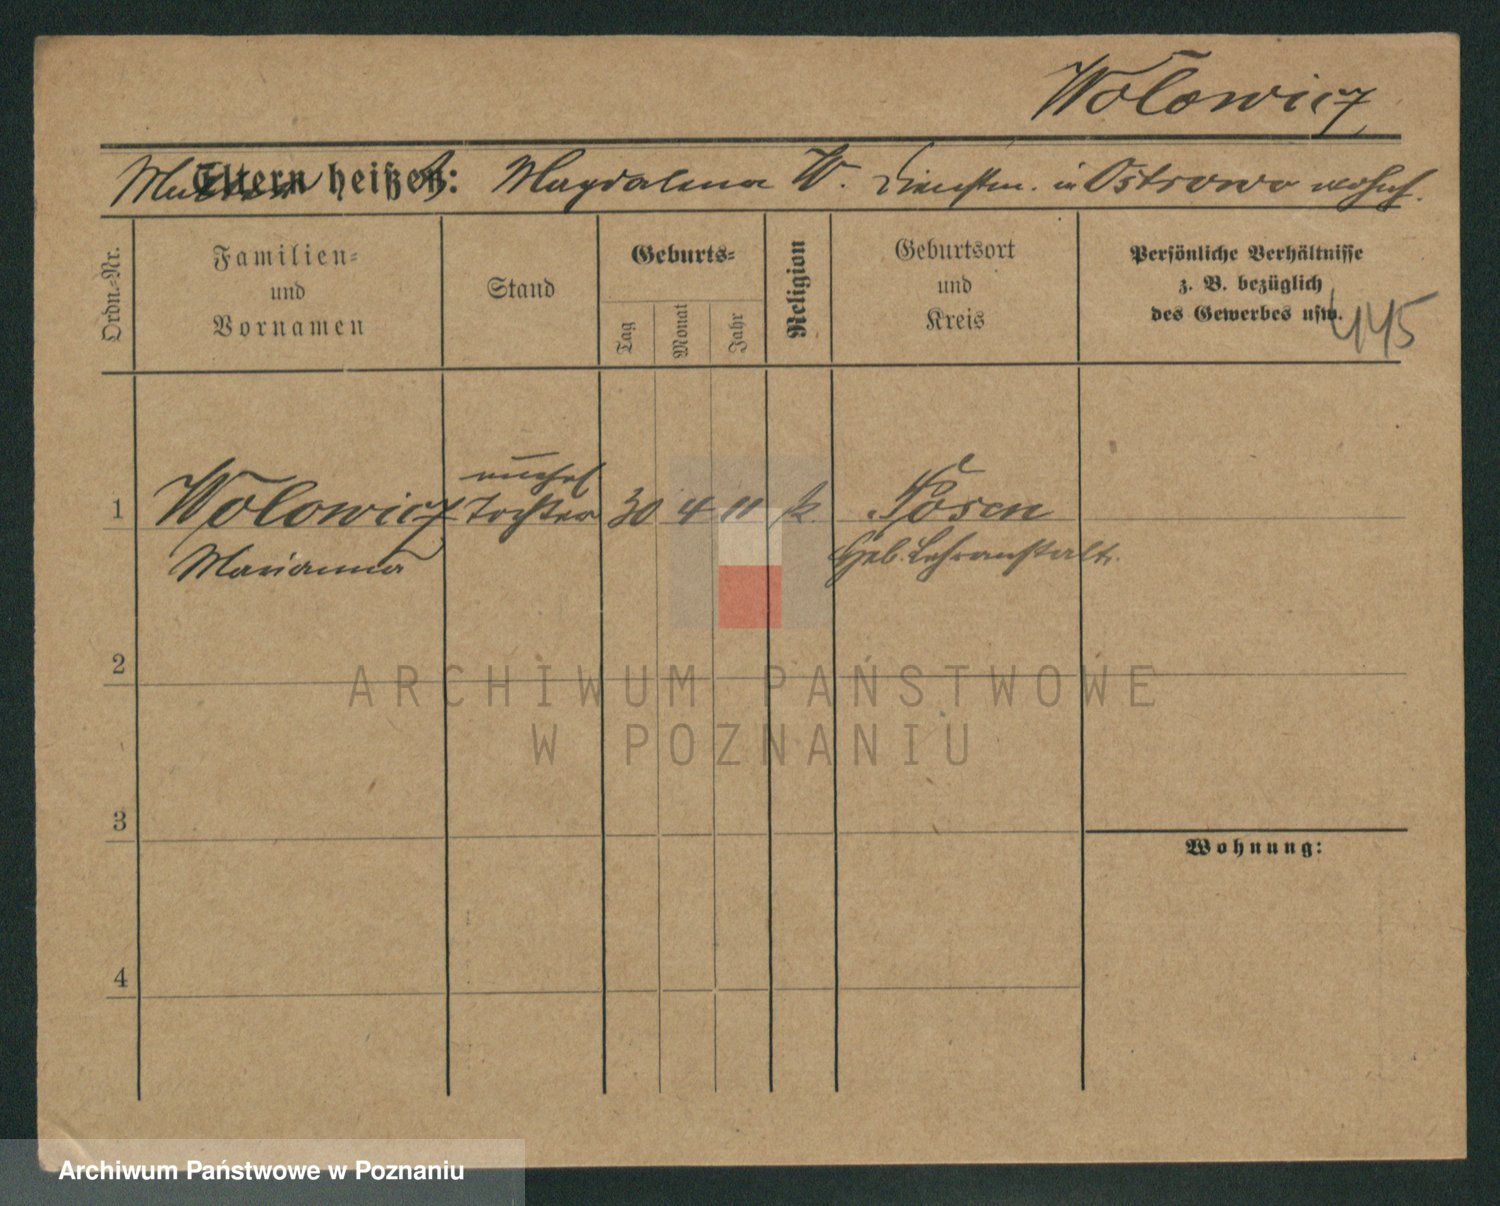 Wolowicz
Mutter heißt: Magdalena W. Dienstm. in Ostrowo wohnh.
Eltern heißen:
Ordn.-Nr.
Familien-
und
Vornamen
Stand
Geburts-
Tag
Monat
Jahr
Religion
Geburtsort
und
Kreis
Persönliche Verhältnisse
z. B. bezüglich
des Gewerbes usw.
445
unehel
1 Wolowicz Tochter 30 4 11 k. Posen
Marianna Heb. Lehranstalt.
2
ARCHIWUM PAŃSTWOWE
W POZNANIU
3
Wohnung:
4
Archiwum Państwowe w Poznaniu